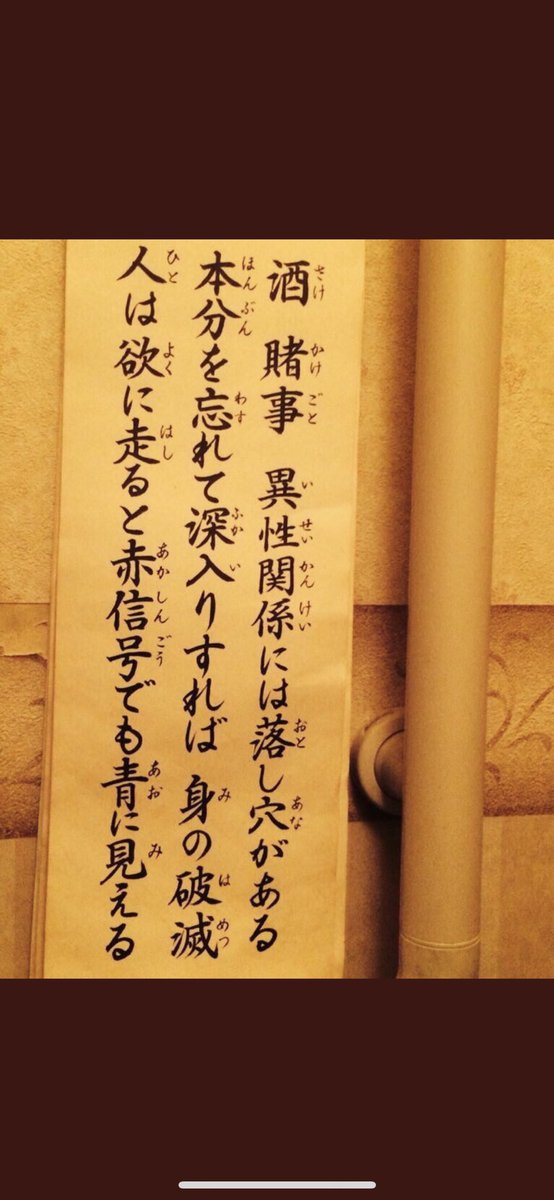 酒 賭事 異性関係には落し穴がある
本分を忘れて深入りすれば 身の破滅
人は欲に走ると赤信号でも青に見える